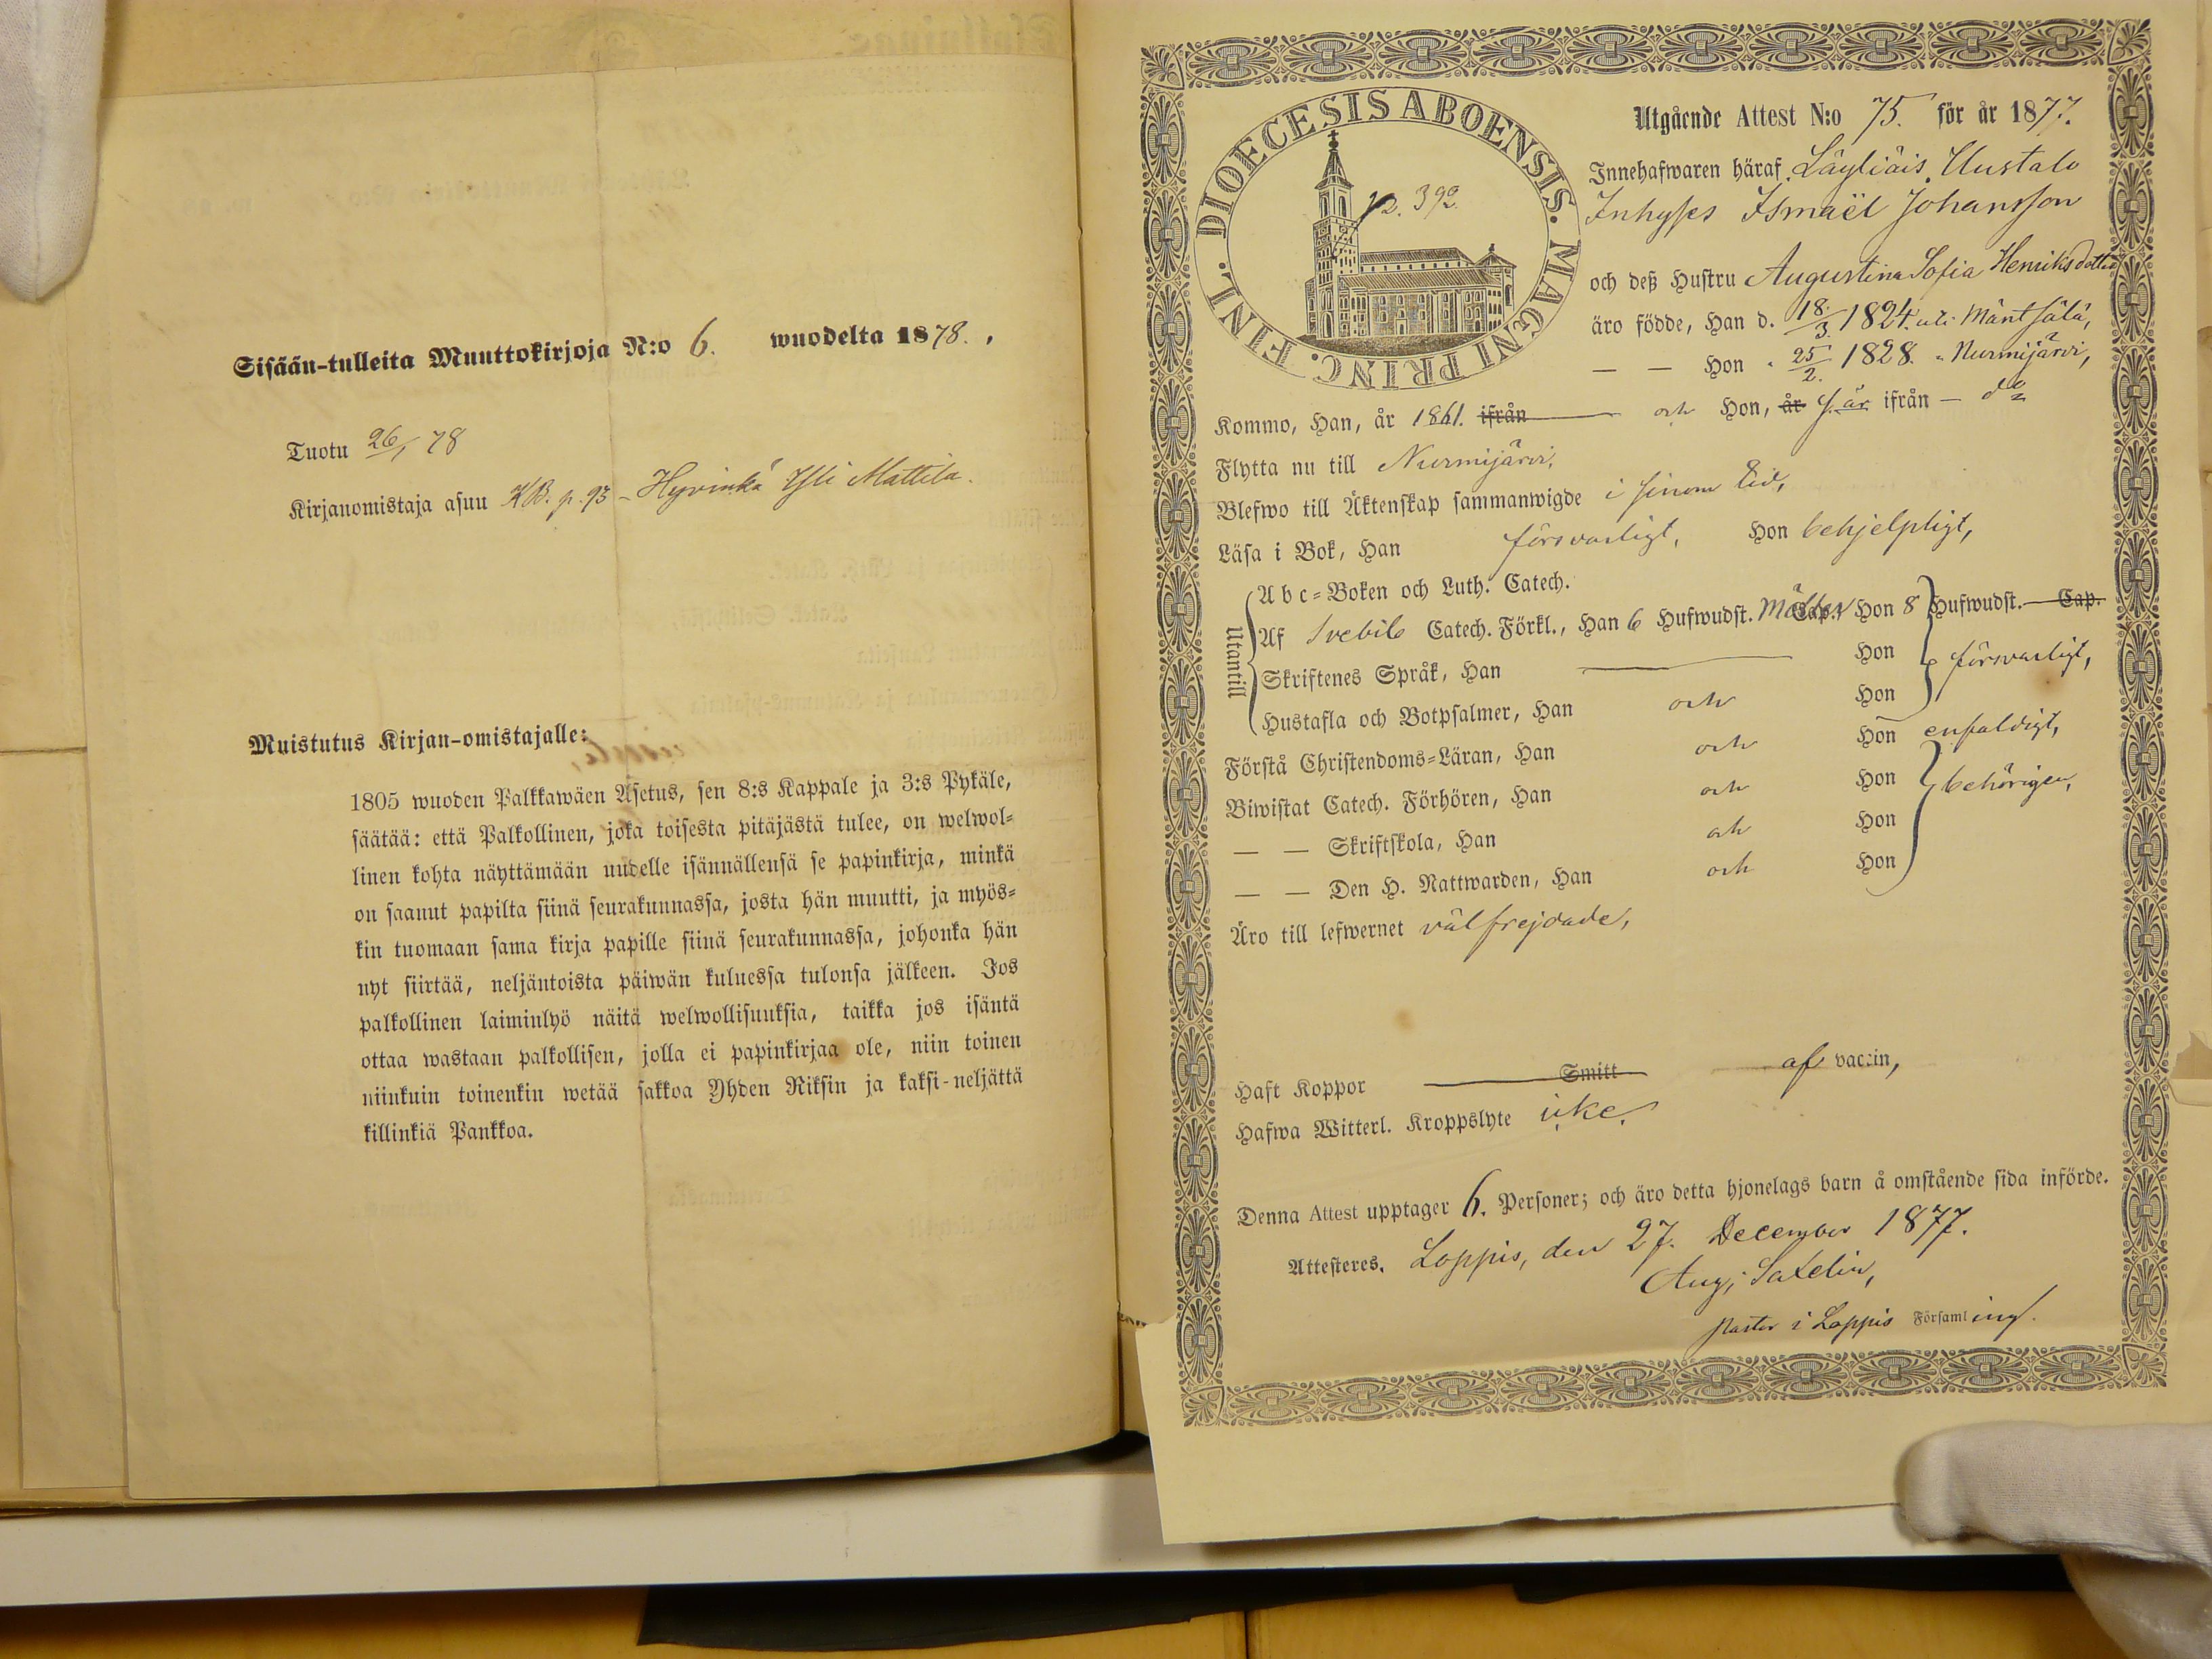 Sisään-tulleita Muuttokirjoja N:o 6. wuodelta 1878.
Tuotu 26/1 78
Kirjanomistaja asuu KB. p. 93 - Hyvinkä Yli Mattila.
Muistutus Kirjan-omistajalle:
1805 wuoden Palkkawäen Asetus, sen 8:s Kappale ja 3:s Pykäle,
säätää: että Palkollinen, joka toisesta pitäjästä tulee, on welwol=
linen kohta näyttämään uudelle isännällensä se papinkirja, minkä
on saanut papilta siinä seurakunnassa, josta hän muutti, ja myös=
kin tuomaan sama kirja papille siinä seurakunnassa, johonka hän
nyt siirtää, neljäntoista päiwän kuluessa tulonsa jälkeen. Jos
palkollinen laiminlyö näitä welwollisuuksia, taikka jos isäntä
ottaa wastaan palkollisen, jolla ei papinkirjaa ole, niin toinen
niinkuin toinenkin wetää sakkoa Yhden Riksin ja kaksi-neljättä
killinkiä Pankkoa.
FINL. DIOECESIS ABOENSIS. MAGNI PRINC.
12. 392.
Utgående Attest N:o 75. för år 1877.
Innehafwaren häraf Läyliäis, Uustalo
Inhyses Ismaël Johansson
och deß Hustru Augustina Sofia Henriksdotter
äro födde, Han d. 18/3 1824. uti Mäntsälä,
— — Hon " 25/2. 1828. " Nurmijärvi,
Kommo, Han, år 1861. ifrån och Hon, år s. år ifrån — do
Flytta nu till Nurmijärvi,
Blefwo till Äktenskap sammanwigde i sinom tid,
Läsa i Bok, Han försvarligt, Hon behjelpligt,
Utantill
A b c=Boken och Luth. Catech.
Af Svebil Catech. Förkl., Han 6 Hufwudst. Cap. Hon 8 Hufwudst. Cap.
Skriftenes Språk, Han Hon försvarligt,
Hustafla och Botpsalmer, Han och Hon
Förstå Christendoms=Läran, Han och Hon enfaldigt,
Biwistat Catech. Förhören, Han och Hon behörigen,
— — Skriftskola, Han och Hon
— — Den H. Nattwarden, Han och Hon
Äro till lefwernet välfrejdade,
Haft Koppor Smitt af vaccin,
Hafwa Witterl. Kroppslyte icke.
Denna Attest upptager 6. Personer; och äro detta hjonelags barn å omstående sida införde.
Attesteres. Loppis, den 27. December 1877.
Aug. Saxelin,
Pastor i Loppis Församling.